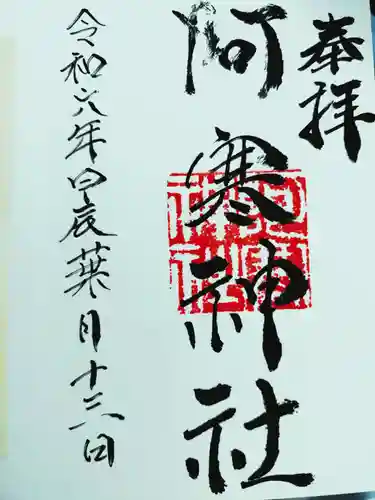 奉拝
阿寒神社
令和六年甲辰葉月十三日